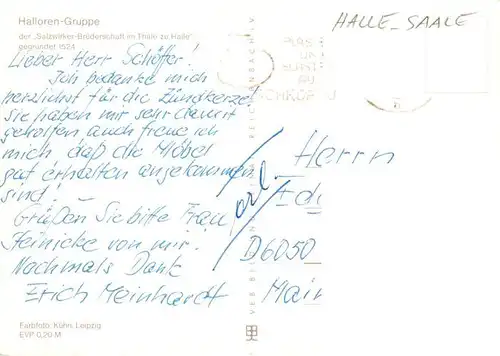 Halloren-Gruppe
der „Salzwirker-Brüderschaft im Thale zu Halle"
gegründet 1524
HALLE-SAALE
Lieber Herr Schöffer!
Ich bedanke mich
herzlichst für die Zündkerze!
Sie haben mir sehr damit
geholfen auch freue ich
mich daß die Möbel
gut erhalten angekommen
sind!
Grüßen Sie bitte Frau
Steinicke von mir!
Nochmals Dank
Erich Meinhardt
erl.
Herrn
D6050
Farbfoto: Kühn, Leipzig
EVP 0,20 M